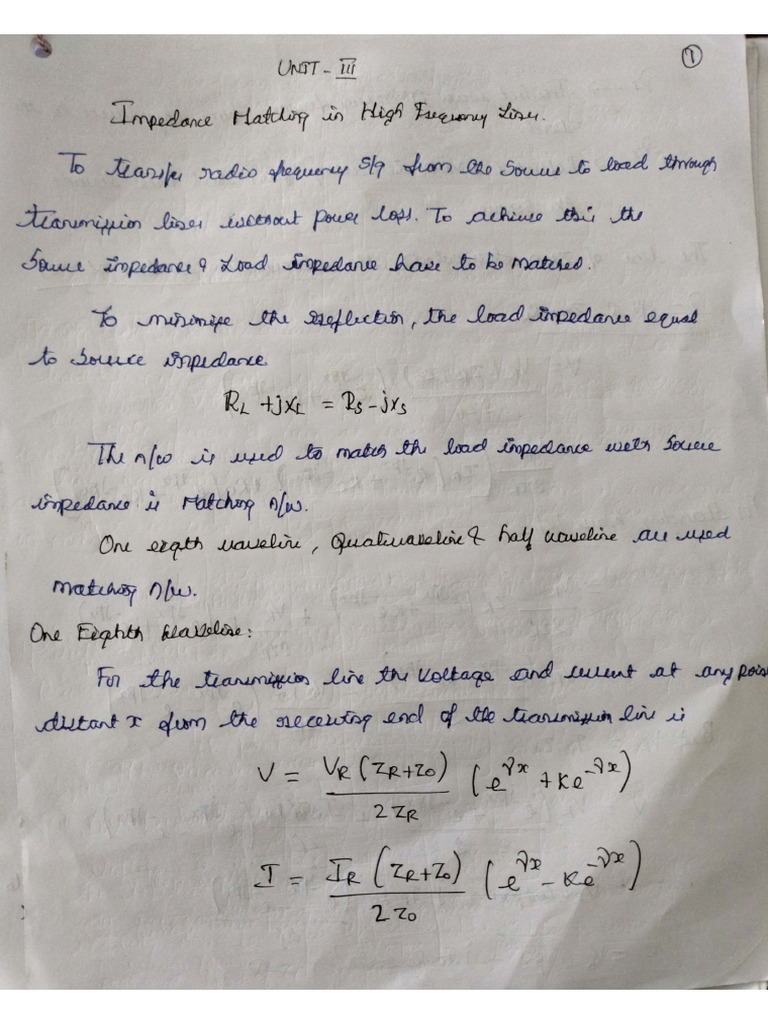 ①
UNIT - III
Impedance Matching in High Frequency Lines.
To transfer radio frequency s/g from the source to load through
transmission lines without power loss. To achieve this the
source impedance & Load impedance have to be matched.
To minimize the reflection, the load impedance equal
to source impedance
R_L + jX_L = R_S - jX_S
The n/w is used to match the load impedance with source
impedance is Matching n/w.
One eigth waveline, Quatwaveline & half waveline are used
matching n/w.
One Eighth Waveline:
For the transmission line the voltage and current at any point
distant x from the receiving end of the transmission line is
V = V_R (Z_R + Z_0) / 2 Z_R (e^{γx} + K e^{-γx})
I = I_R (Z_R + Z_0) / 2 Z_0 (e^{γx} - K e^{-γx})